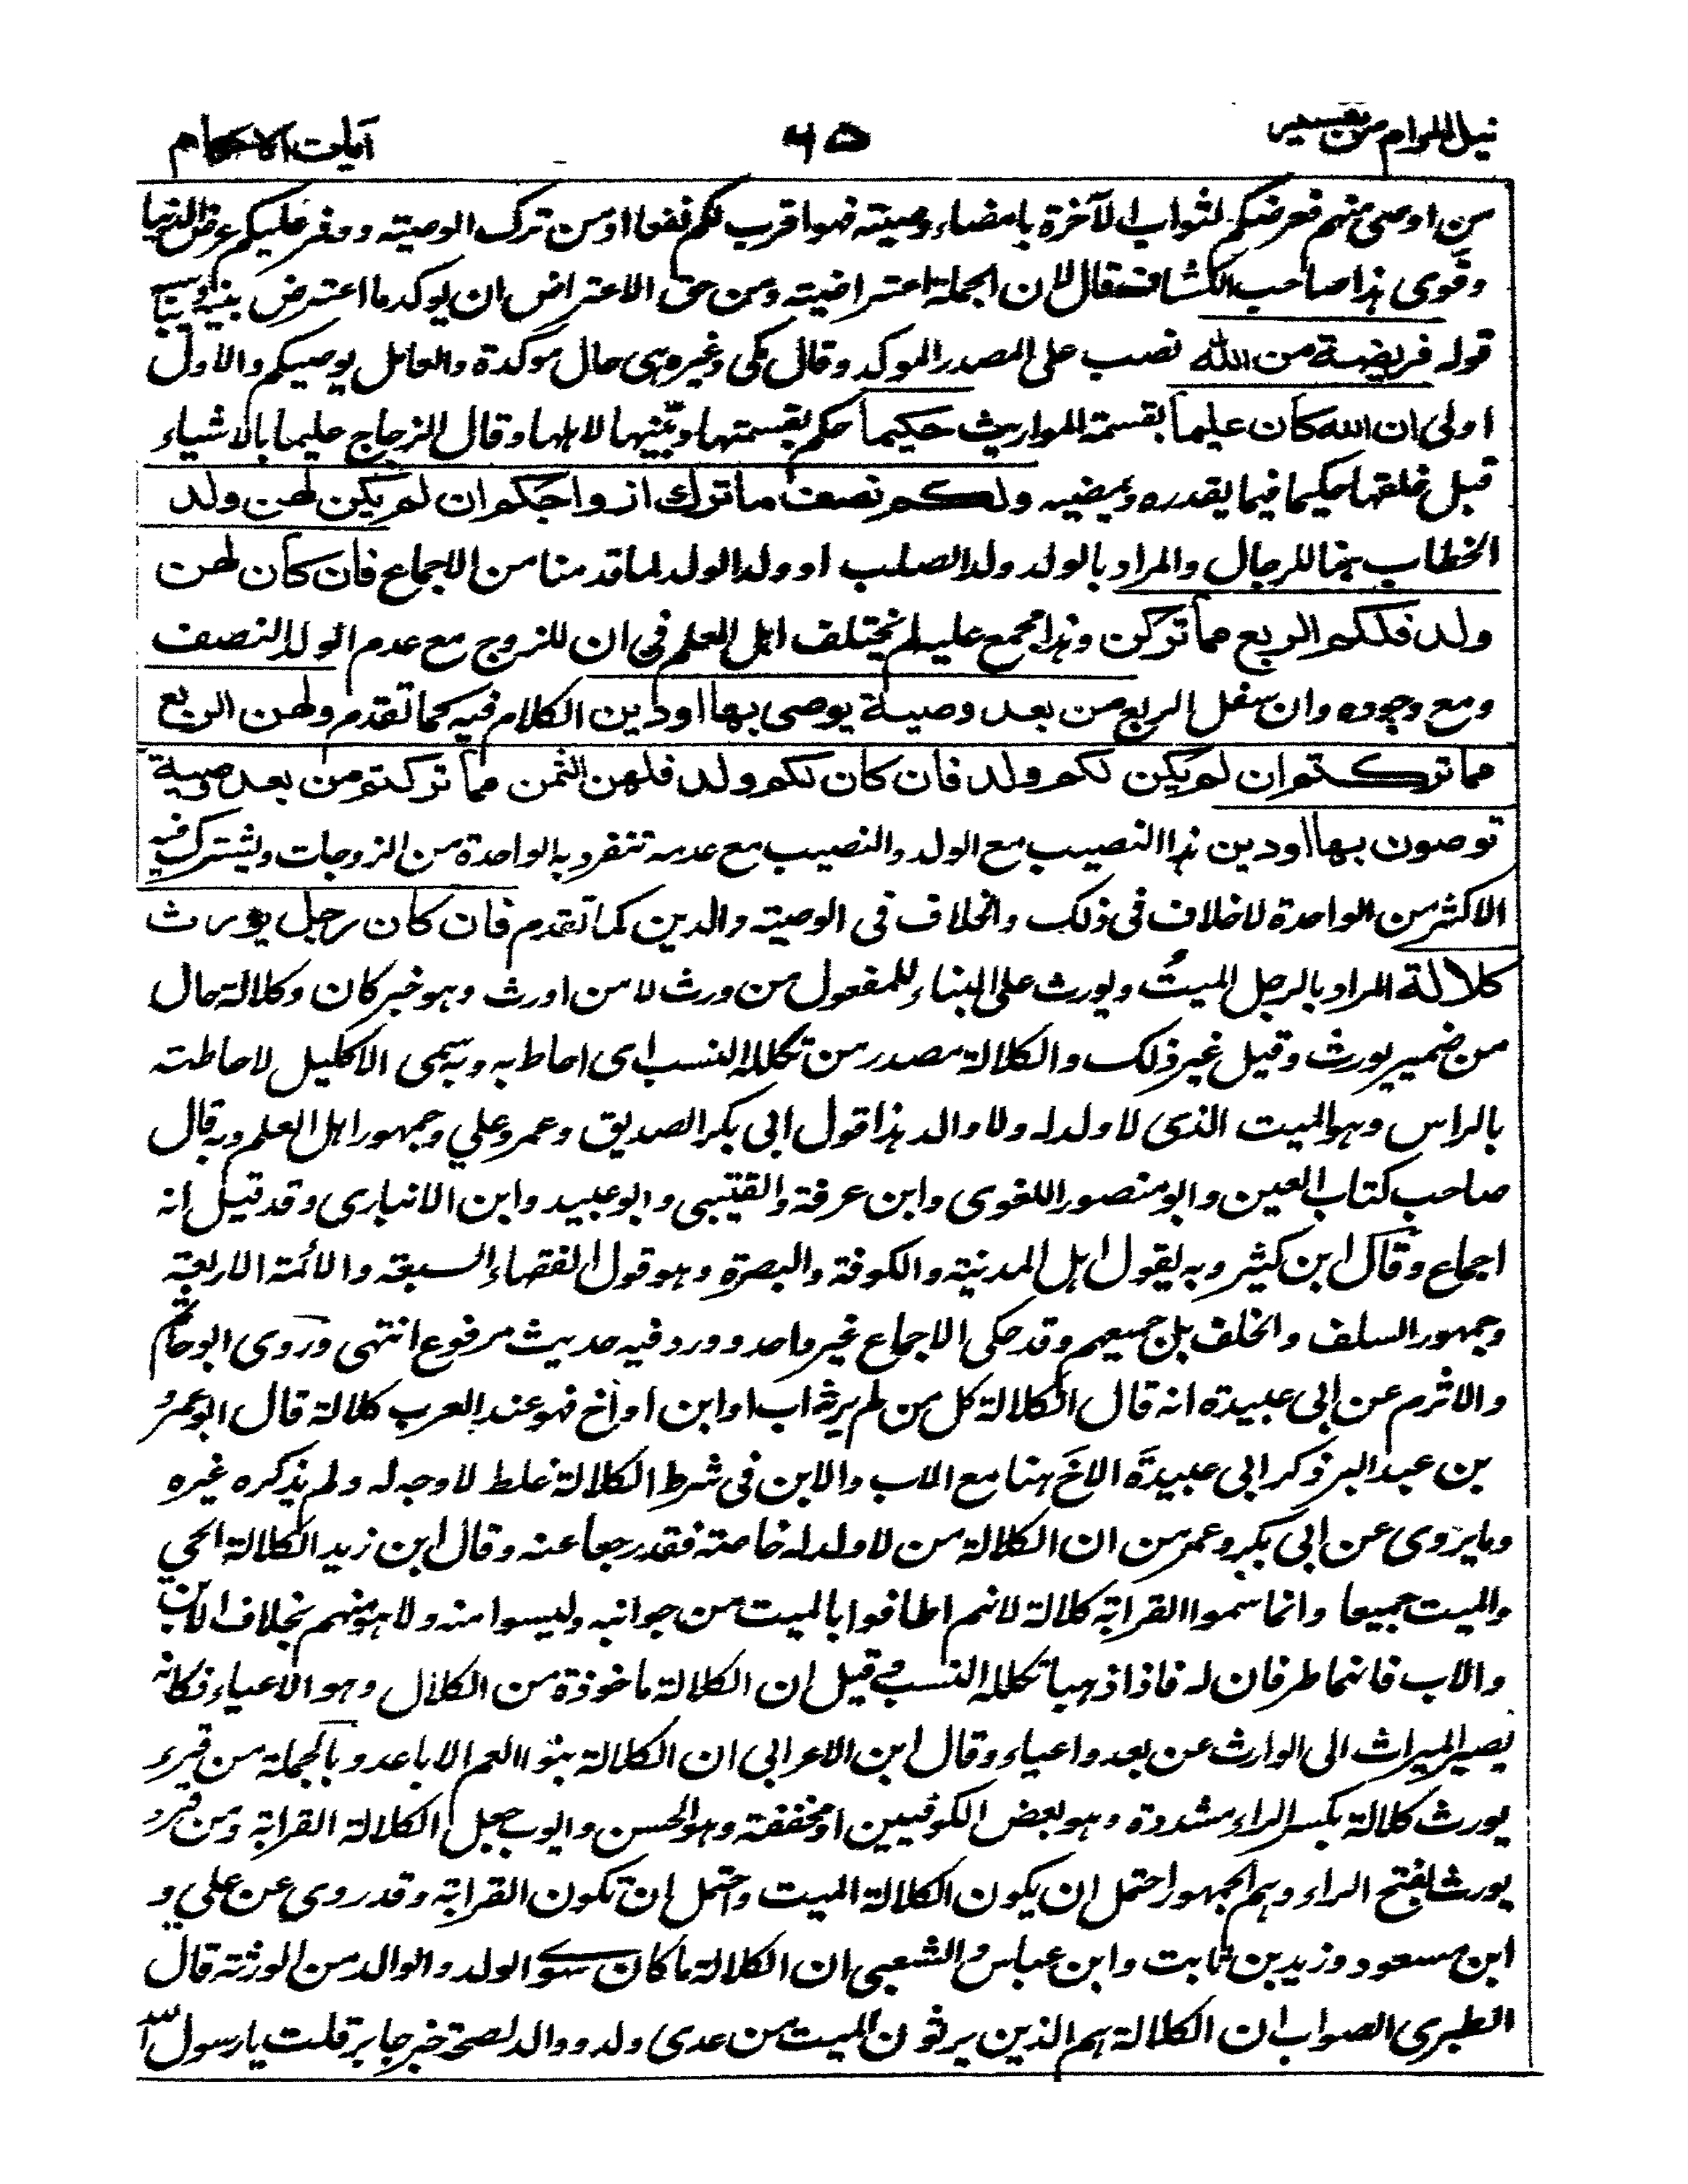 نيل المرام من تفسير
٦٥
آيات الاحكام
من اوصى منهم فعرضكم لثواب الآخرة بامضاء وصيته فهو اقرب لكم نفعا او من ترك الوصيته ووفر عليكم عرض الدنيا
وقوى هذا صاحب الكشاف فقال لان الجملة اعتراضية ومن حق الاعتراض ان يوكد ما اعترض بينه
قوله فريضة من الله نصب على المصدر الموكد وقال مكى وغيره هى حال موكدة والعامل يوصيكم والاول
اولى ان الله كان عليما بقسمة المواريث حكيما حكم بقسمتها وبينها لاهلها وقال الزجاج عليما بالاشياء
قبل خلقها حكيما فيما يقدره ويمضيه ولكم نصف ما ترك ازواجكم ان لم يكن لهن ولد
الخطاب هنا للرجال والمراد بالولد ولد الصلب او ولد الولد لما قدمنا من الاجماع فان كان لهن
ولد فلكم الربع مما تركن وهذا مجمع عليه لم يختلف اهل العلم فى ان للزوج مع عدم الولد النصف
ومع وجوده وان سفل الربع من بعد وصية يوصى بها اودين الكلام فيه كما تقدم ولهن الربع
مما تركتم ان لم يكن لكم ولد فان كان لكم ولد فلهن الثمن مما تركتم من بعد وصية
توصون بها اودين هذا النصيب مع الولد والنصيب مع عدمه تنفرد به الواحدة من الزوجات ويشترك فيه
الاكثر من الواحدة لا خلاف فى ذلك والخلاف فى الوصية والدين كما تقدم فان كان رجل يورث
كلالة المراد بالرجل الميت ويورث على البناء للمفعول من ورث لا من اورث وهو خبر كان وكلالة حال
من ضمير يورث وقيل غير ذلك والكلالة مصدر من تكلله النسب اى احاط به وبه سمى الاكليل لاحاطته
بالراس وهو الميت الذى لا ولد له ولا والد هذا قول ابى بكر الصديق وعمر وعلي وجمهور اهل العلم وبه قال
صاحب كتاب العين وابو منصور اللغوى وابن عرفة والقتيبى وابو عبيد وابن الانبارى وقد قيل انه
اجماع وقال ابن كثير وبه يقول اهل المدينة والكوفة والبصرة وهو قول الفقهاء السبعة والائمة الاربعة
وجمهور السلف والخلف بل جميعهم وقد حكى الاجماع غير واحد وورد فيه حديث مرفوع انتهى وروى ابو حاتم
والاثرم عن ابى عبيدة انه قال الكلالة كل من لم يرثه اب او ابن او اخ فهو عند العرب كلالة قال ابو عمر
بن عبد البر ذكر ابى عبيدة الاخ هنا مع الاب والابن فى شرط الكلالة غلط لا وجه له ولم يذكره غيره
وما يروى عن ابى بكر وعمر من ان الكلالة من لا ولد له خاصة فقد رجعا عنه وقال ابن زيد الكلالة الحي
والميت جميعا وانما سموا القرابة كلالة لانهم اطافوا بالميت من جوانبه وليسوا منه ولا هو منهم بخلاف الابن
والاب فانهما طرفان له فاذا ذهبا تكلله النسب وقيل ان الكلالة ماخوذة من الكلال وهو الاعياء فكانه
يصير الميراث الى الوارث عن بعد واعياء وقال ابن الاعرابى ان الكلالة بنوا العم الاباعد وبالجملة من قرء
يورث كلالة بكسر الراء مشددة وهو بعض الكوفيين او مخففة وهو الحسن وايوب جعل الكلالة القرابة ومن قرء
يورث بفتح الراء وهم الجمهور احتمل ان يكون الكلالة الميت واحتمل ان تكون القرابة وقد روى عن علي و
ابن مسعود وزيد بن ثابت وابن عباس والشعبى ان الكلالة ما كان سوى الولد والوالد من الورثة قال
الطبرى الصواب ان الكلالة هم الذين يرثون الميت من عدى ولده ووالد لصحة خبر جابر قلت يا رسول الله